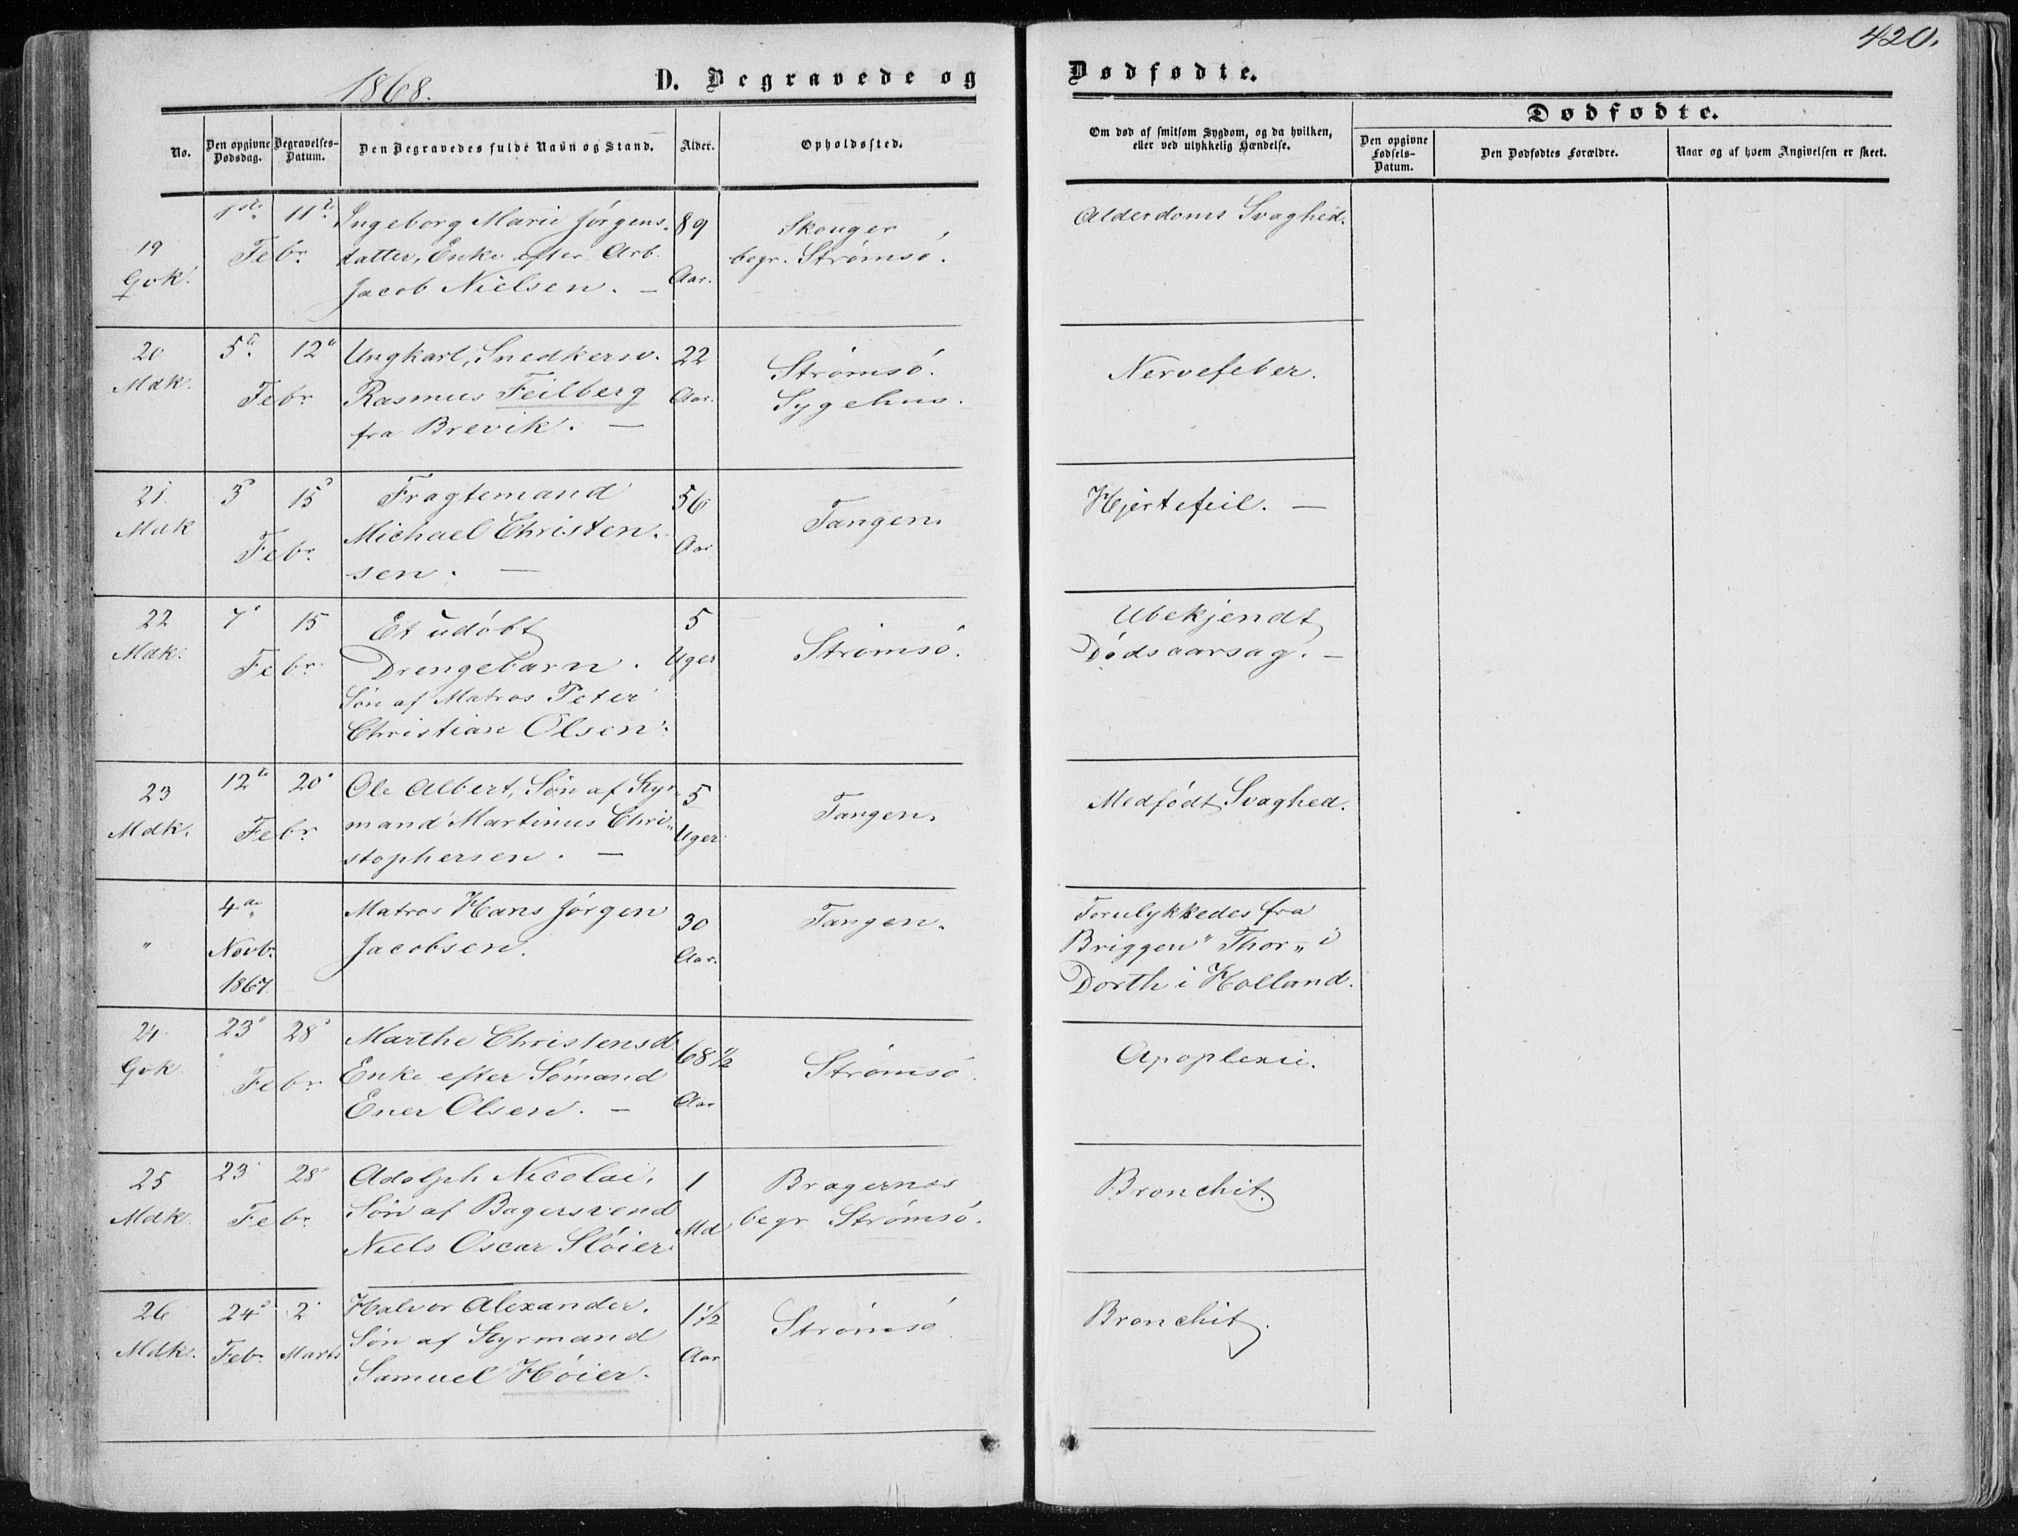 420.
1868.
D. Begravede og
Dødfødte.
No.
Den opgivne Dødsdag.
Begravelses-Datum.
Den Begravedes fulde Navn og Stand.
Alder.
Opholdssted.
Om død af smitsom Sygdom, og da hvilken, eller ved ulykkelig Hændelse.
Dødfødte.
Den opgivne Fødsels-Datum.
Den Dødfødtes Forældre.
Naar og af hvem Angivelsen er skeet.
19 Qvk.
1ste 11te Febr.
Ingeborg Marie Jørgens-
datter, Enke efter Arb.
Jacob Nielsen. —
89 Aar.
Skouger
begr. Strømsø.
Alderdoms Svaghed.
20 Mdk.
5te 12te Febr.
Ungkarl, Snedkersv.
Rasmus Feilberg
fra Brevik. —
22 Aar.
Strømsø.
Sygehus.
Nervefeber.
21. Mdk
3 15 Febr.
Fragtemand
Michael Christen-
sen. —
56 Aar
Tangen.
Hjertefeil. —
22 Mdk.
7 15 Febr.
Et udøbt
Drengebarn.
Søn af Matros Peter
Christian Olsen.
5 Uger
Strømsø.
Ubekjendt
Dødsaarsag. —
23 Mdk.
12te 20 Febr.
Ole Albert, Søn af Styr-
mand Martinus Chri-
stophersen. —
5 Uger
Tangen.
Medfødt Svaghed.
"
4de Novb. 1867.
Matros Hans Jørgen
Jacobsen.
30 Aar.
Tangen.
Forulykkedes fra
Briggen "Thor" i
Dorth i Holland.
24 Qvk
23 28 Febr.
Marthe Christensd.
Enke efter Sømand
Ener Olsen. —
68 1/2 Aar
Strømsø.
Apoplexie.
25 Mdk.
23 28 Febr.
Adolph Nicolai,
Søn af Bagersvend
Niels Oscar Sløier
1 Md
Bragernes
begr Strømsø.
Bronchit
26 Mdk.
24 Feb. 2 Marts
Halvor Alexander.
Søn af Styrmand
Samuel Høier.
1 1/2 Aar
Strømsø.
Bronchit.